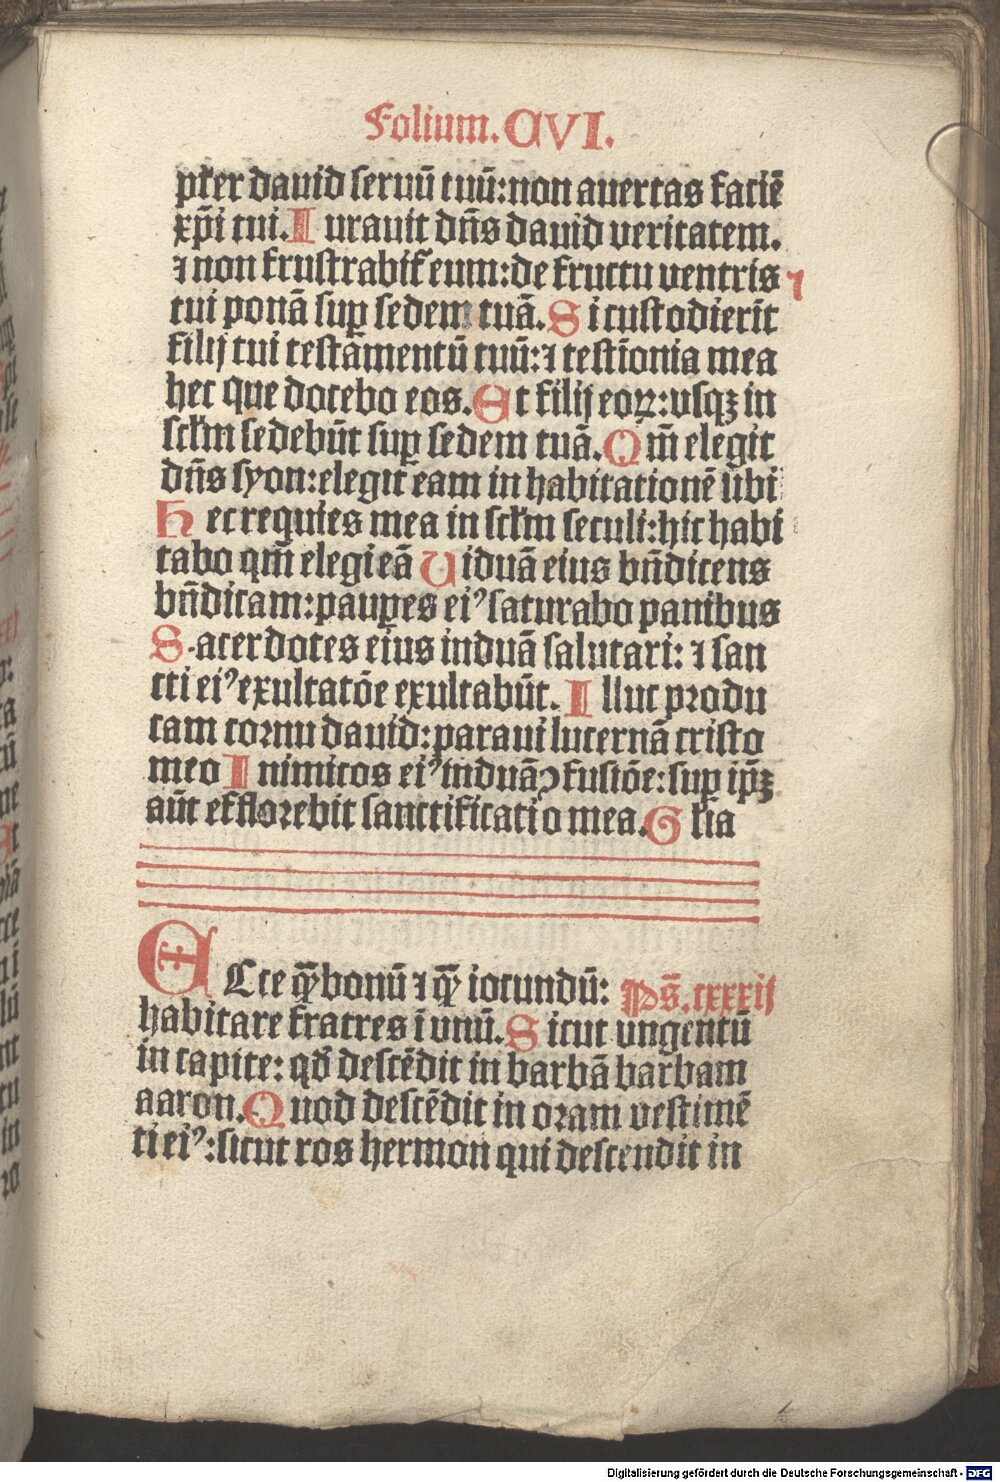 Folium. CVI.
pter dauid seruū tuū: non auertas faciē
xp̄i tui. I urauit dn̄s dauid veritatem.
⁊ non frustrabit᷑ eum: de fructu ventris
tui ponā suꝑ sedem tuā. S i custodierīt
filij tui testamentū tuū: ⁊ testīonia mea
hec que docebo eos. E t filij eoꝝ: vsqꝫ in
scl̄m sedebūt suꝑ sedem tuā. Q m̄ elegit
dn̄s syon: elegit eam in habitationē sibi
H ec requies mea in scl̄m seculi: hic habi
tabo qm̄ elegi eā V iduā eius bn̄dicens
bn̄dicam: pauꝑes eiꝰ saturabo panibus
S acerdotes eius induā salutari: ⁊ san
cti eiꝰ exultatōe exultabūt. I lluc produ
cam cornu dauid: paraui lucernā cristo
meo I nimicos eiꝰ induā ꝯfusiōe: suꝑ ip̄ꝫ
aūt efflorebit sanctificatio mea. G l̄ia
E Cce qͫ bonū ⁊ qͫ iocundū: Ps̄. cxxxij
habitare fratres ī vnū. S icut vngentū
in capite: qd̄ descēdit in barbā barbam
aaron. Q uod descēdit in oram vestimē
ti eiꝰ: sicut ros hermon qui descendit in
Digitalisierung gefördert durch die Deutsche Forschungsgemeinschaft - DFG